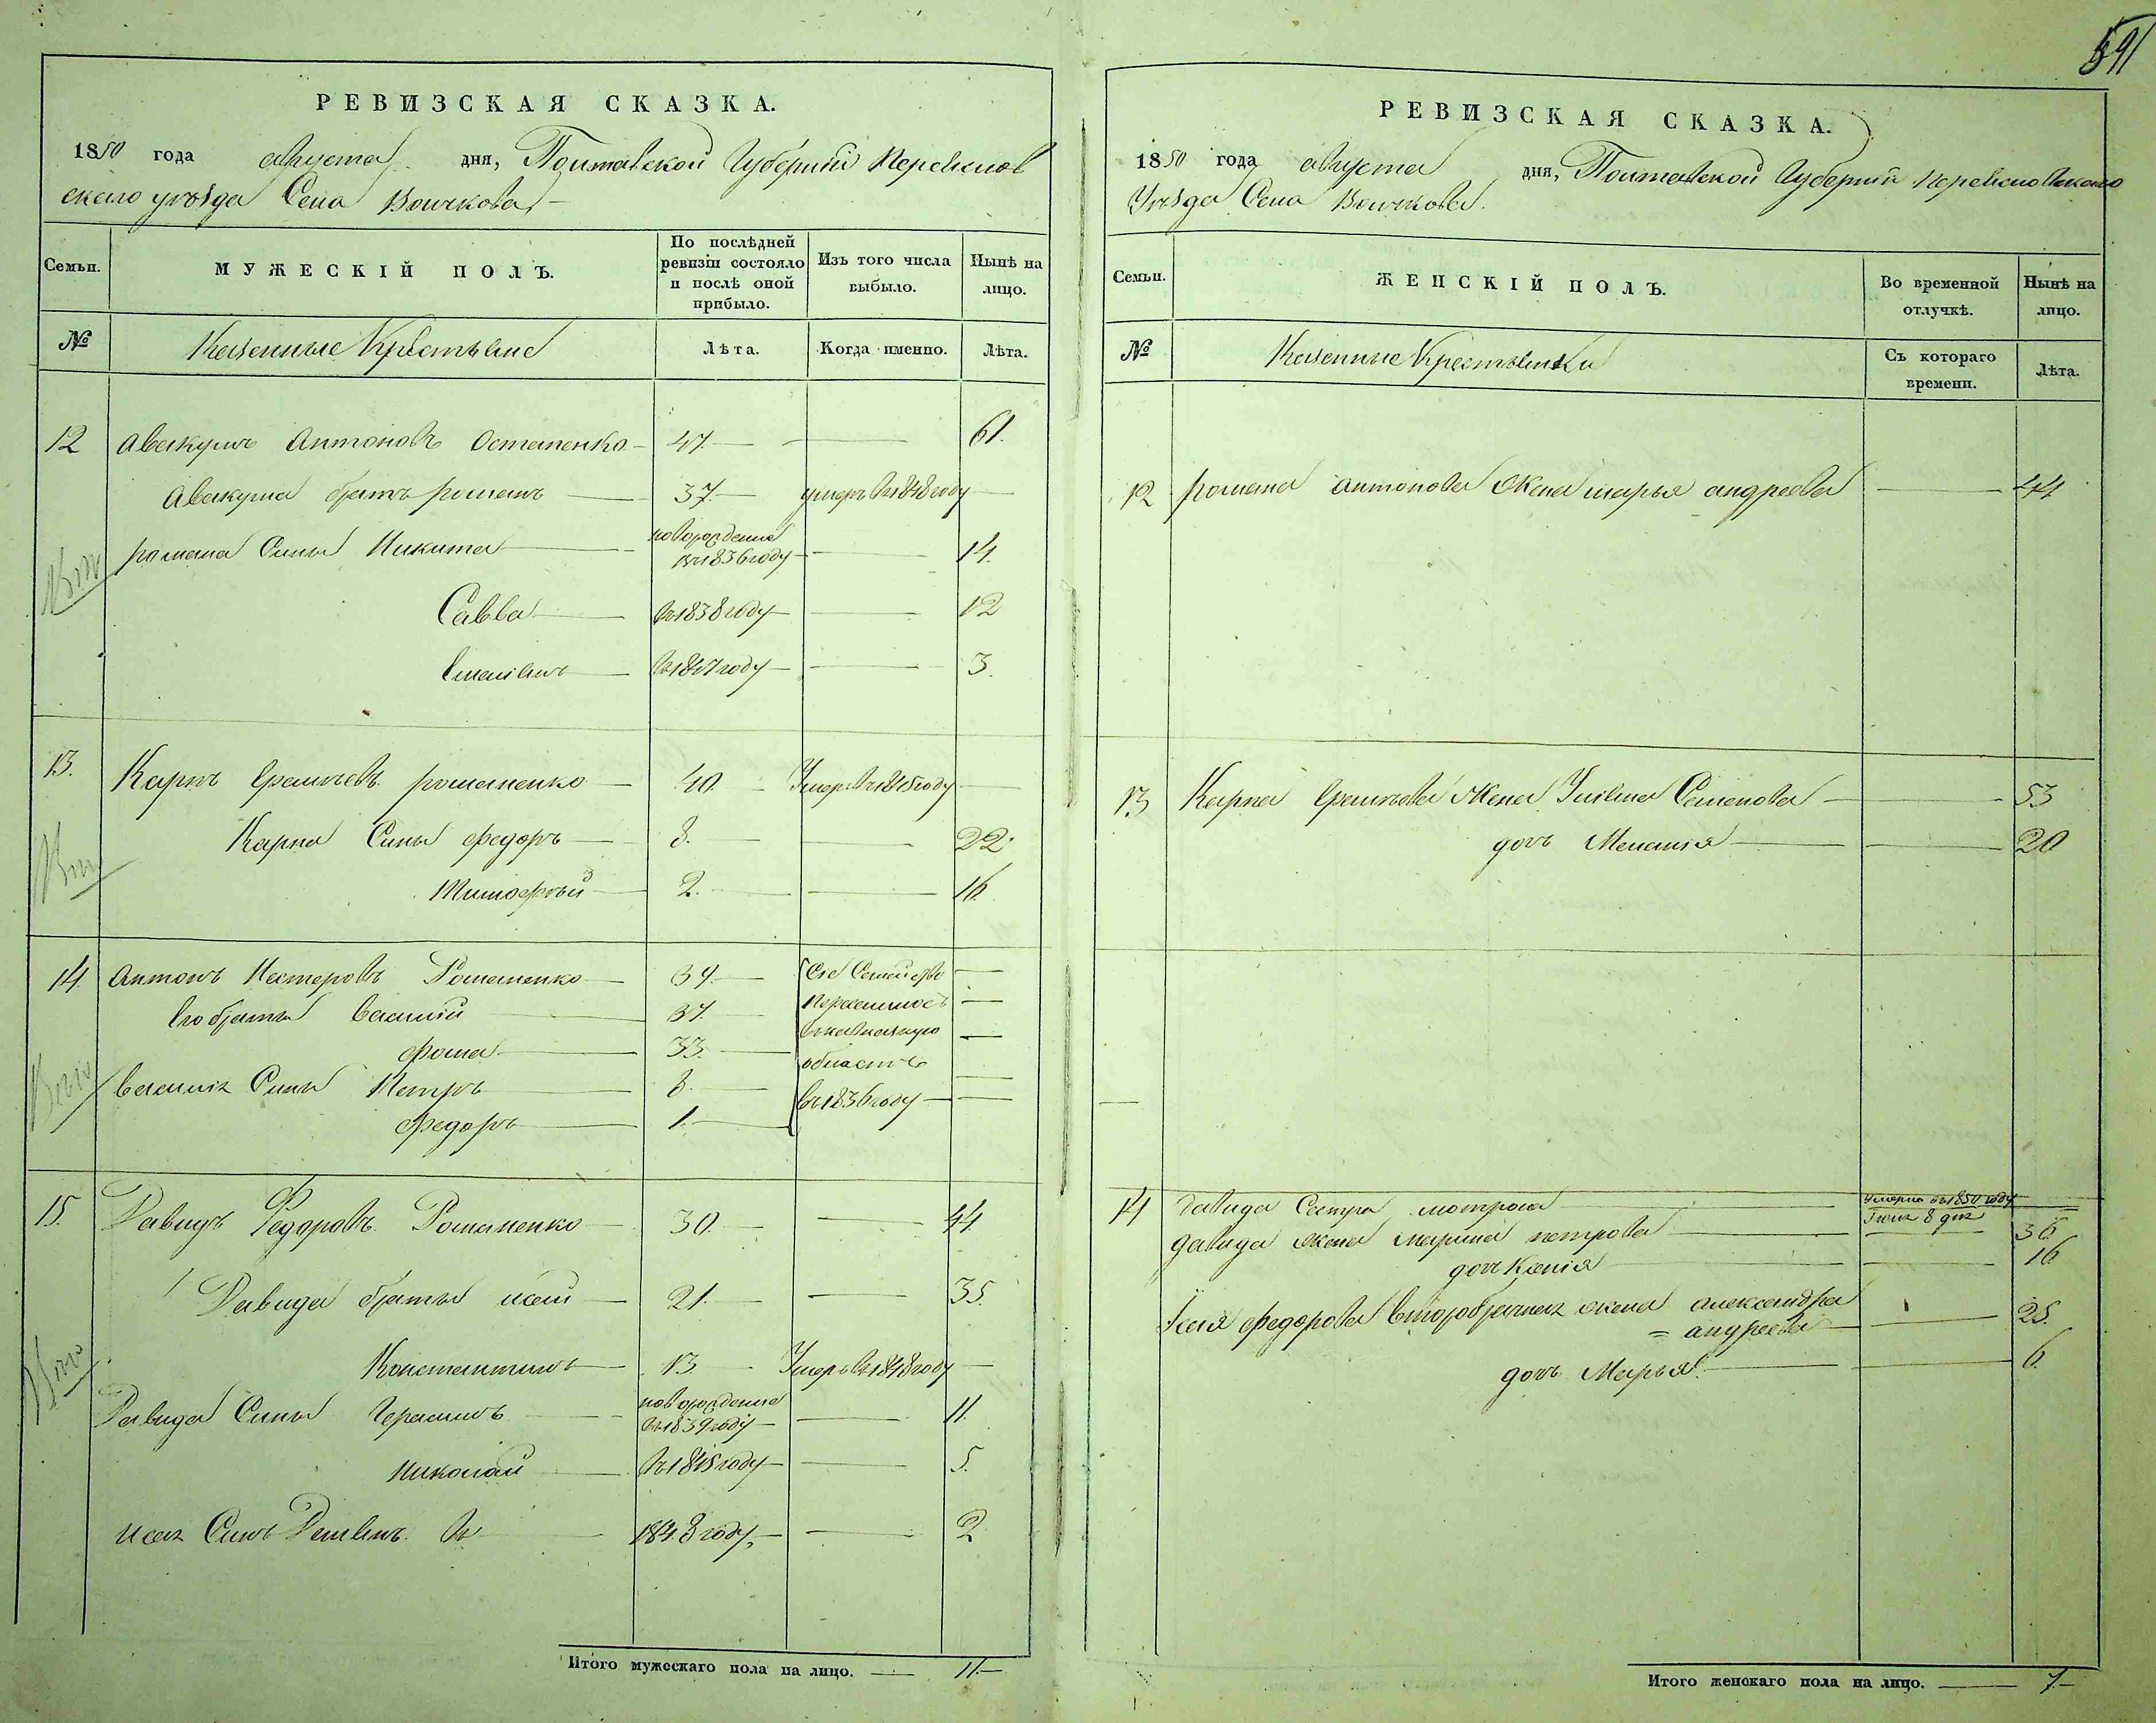 591
РЕВИЗСКАЯ СКАЗКА.
1850 года августа дня, Полтавской Губерніи Переяслов
скаго уѣзда Села Вовчкова
Семьи.
МУЖЕСКІЙ ПОЛЪ.
По послѣдней ревизіи состояло и послѣ оной прибыло.
Изъ того числа выбыло.
Нынѣ на лицо.
№
Казенные Крестьяне
Лѣта.
Когда именно.
Лѣта.
12 Авакумъ Антоновъ Остапенко 47. 61.
Авакума братъ романъ 37. умеръ въ 1848 году
романа Сыны Никита новорожденъ въ 1836 году 14.
Савва въ 1838 году 12
въ 1847 году 3.
13. Карпъ Ермичевъ романенко 40. Умеръ въ 1845 году
Карпа Сыны федоръ 8. 22.
Тимофѣй 2. 16.
14 Антонъ Нестеровъ Романенко 39. Сіе Семейство
Его братья Василій 37. Переселилось
фома 33. въ кавказкую
область
Василія Сыны Петръ 8.
въ 1836 году
федоръ 1.
15. Давидъ Федоровъ Романенко 30. 44
Давида братья исай 21. 35.
Константинъ 13. Умеръ въ 1848 году
Давида Сыны Герасимъ новорожденъ въ 1839 году 11.
николай въ 1845 году 5.
исая Сынъ Демянъ въ 1848 году, 2
Итого мужескаго пола на лицо. 11.
РЕВИЗСКАЯ СКАЗКА.
1850 года августа дня, Полтавской Губерніи Переясловскаго
Уѣзда Села Вовчкова.
Семьи.
ЖЕНСКІЙ ПОЛЪ.
Во временной отлучкѣ.
Нынѣ на лицо.
№
Казенные Крестьянки
Съ котораго времени.
Лѣта.
12 романа антонова Жена марья андреева 44
13 Карпа Жена Уліяна Семенова 53
дочь Меланія 20
14 Давида Сестра мотрона умерла въ 1850 году
давида жена марина петрова 36
дочь Ксенія 16
Исая федорова второбрачная жена александра
= андреева 25.
дочь Марья. 6.
Итого женскаго пола на лицо. 7.